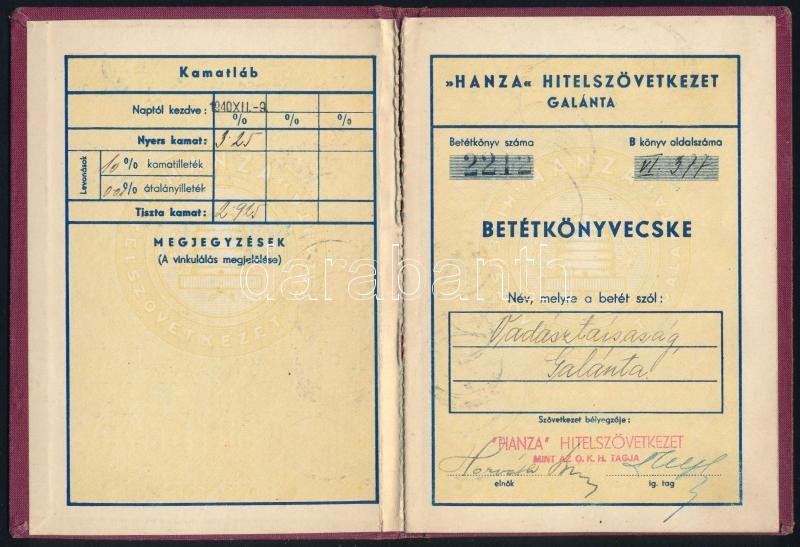 Kamatláb
Naptól kezdve: 1940XII.-9.
% % %
Nyers kamat: 3·25
Levonások
10 % kamatilleték
% átalányilleték
Tiszta kamat: 2·925
MEGJEGYZÉSEK
(A vinkulálás megjelölése)
»HANZA« HITELSZÖVETKEZET
GALÁNTA
Betétkönyv száma B könyv oldalszáma
2212 VI. 377
BETÉTKÖNYVECSKE
Név, melyre a betét szól:
Vadásztársaság
Galánta
Szövetkezet bélyegzője:
"HANZA" HITELSZÖVETKEZET
MINT AZ O. K. H. TAGJA
Horváth
elnök ig. tag
darabanth